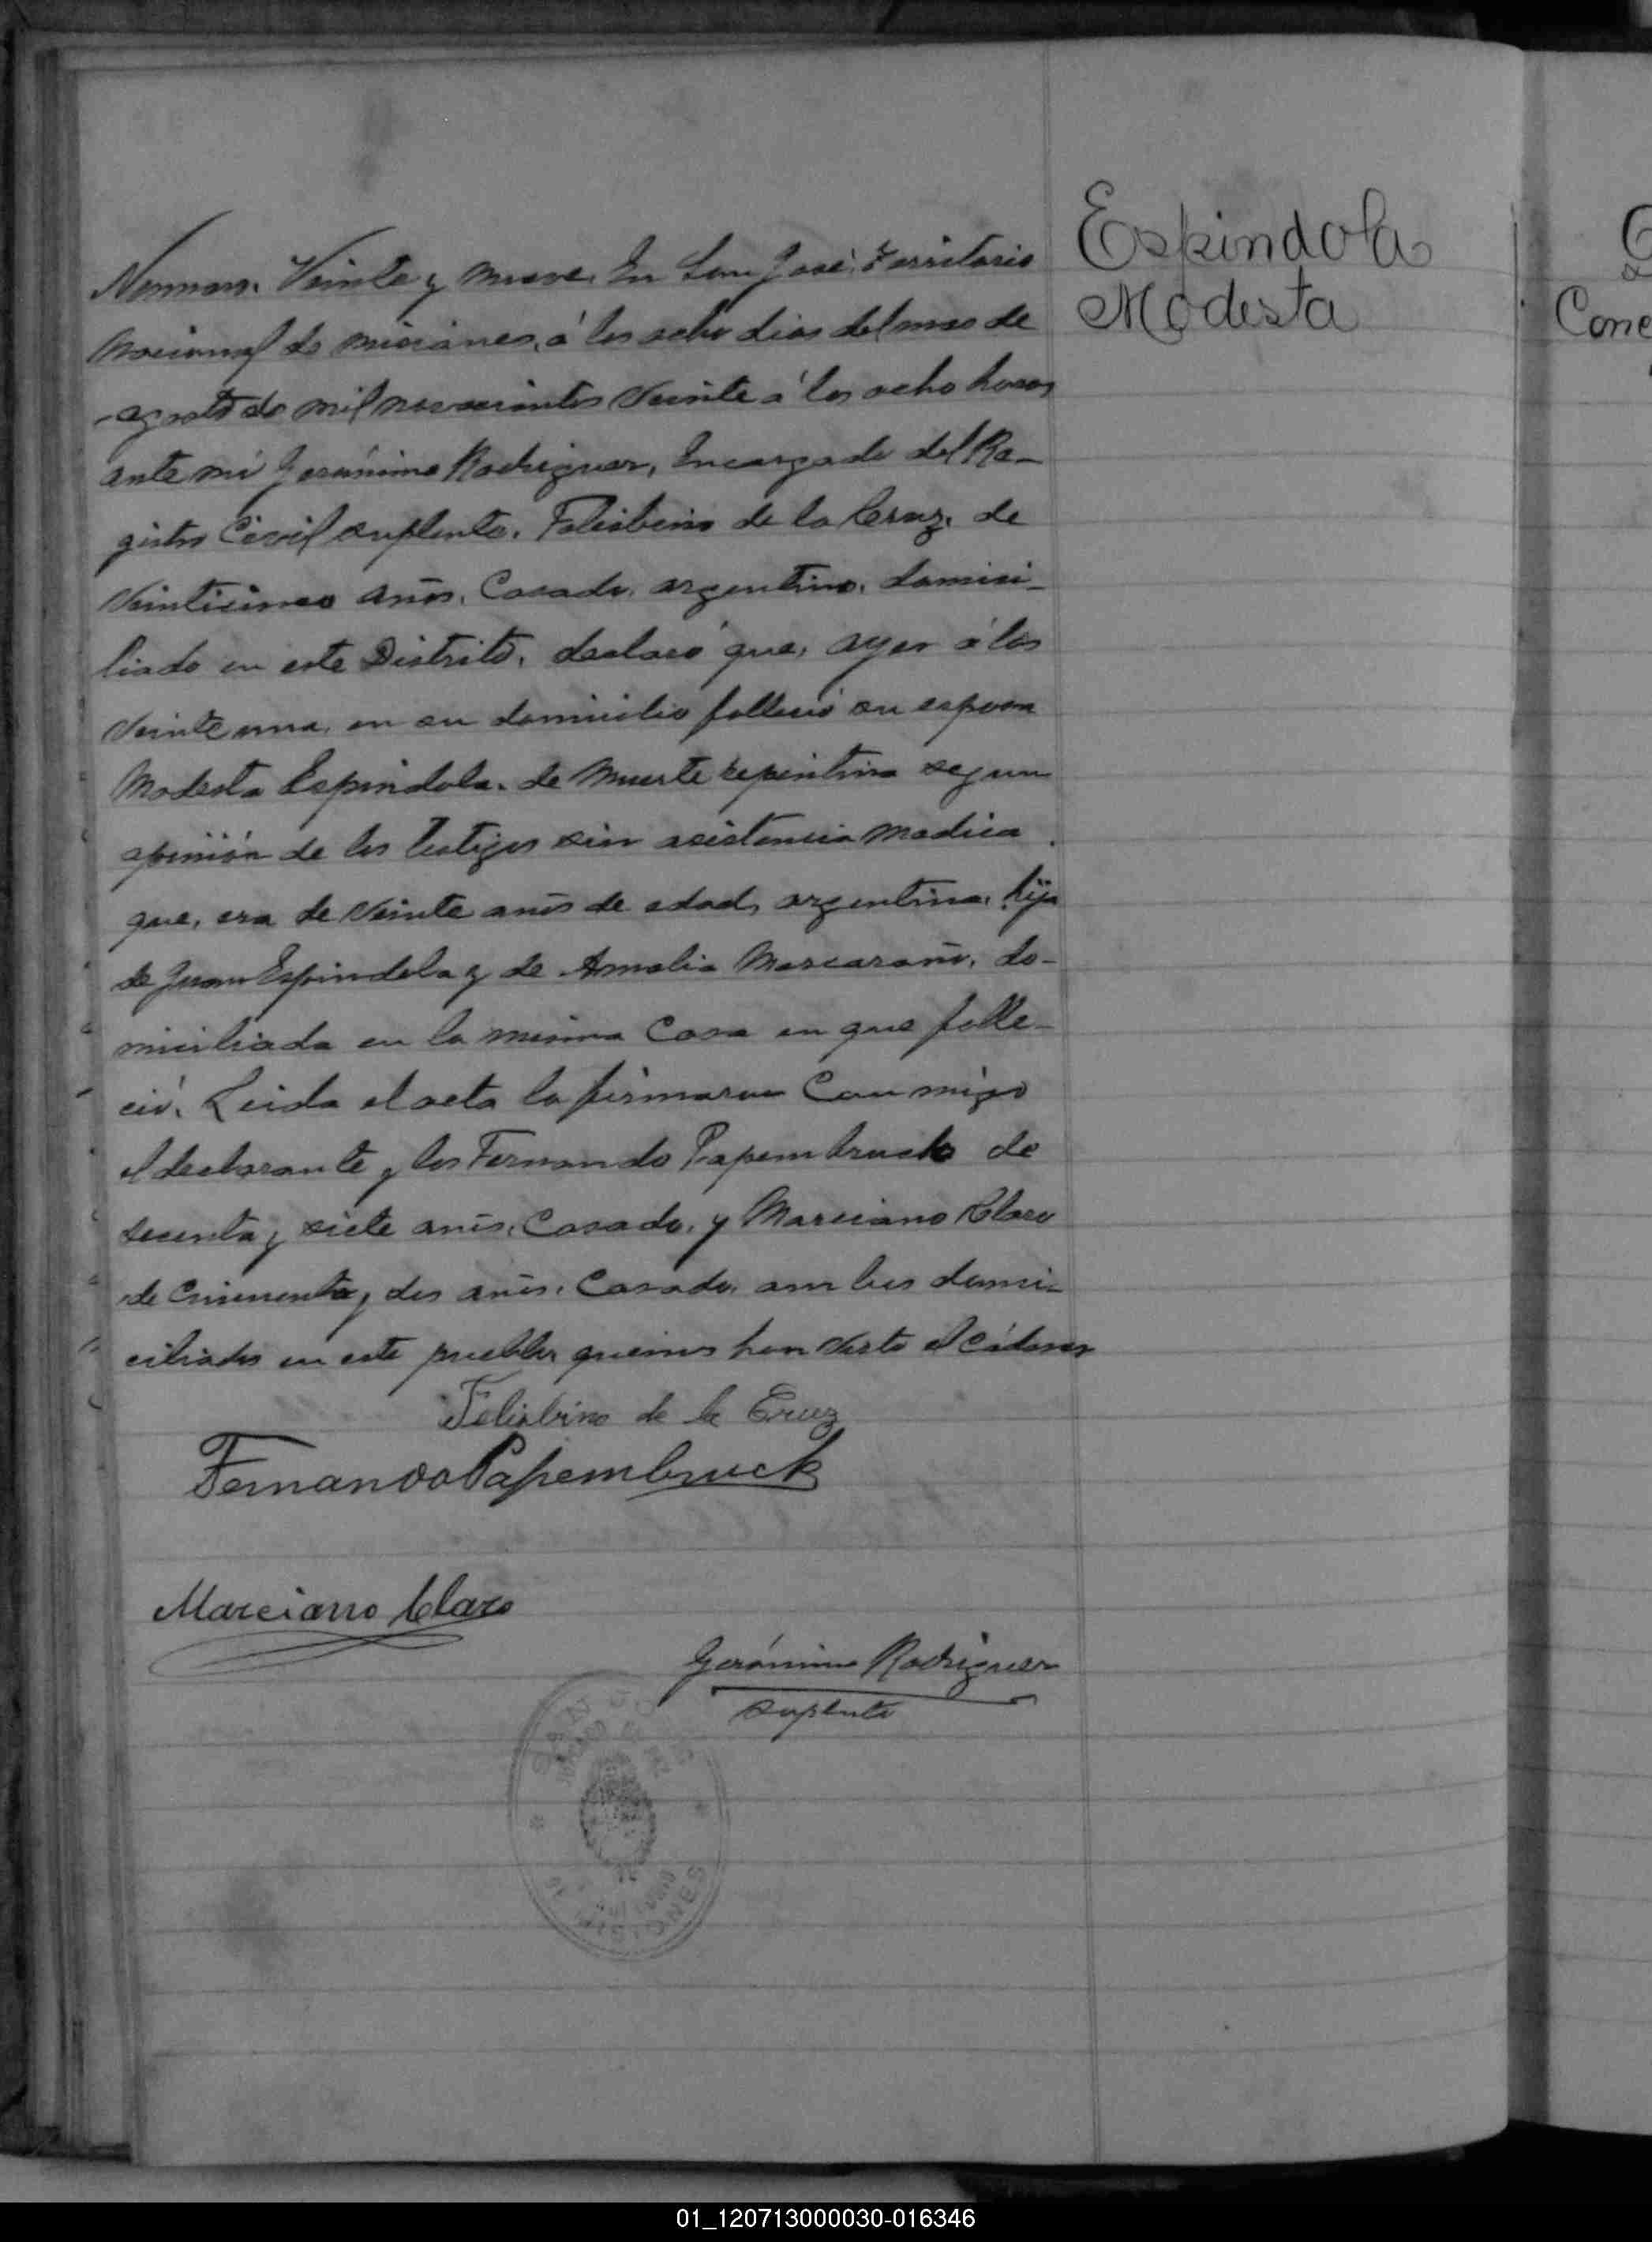 Espindola
Modesta
Numero. Veinte y nueve. En San José, Territorio
Nacional de misiones, á los ocho dias del mes de
agosto de mil novecientos veinte á las ocho horas
ante mi Gerónimo Rodriguez, Encargado del Re-
gistro Civil suplente. Felisbino de la Cruz, de
veinticinco años, Casado, argentino, domici-
liado en este Distrito, declaró que, ayer á las
veinte una, en su domicilio falleció su esposa
Modesta Espindola. de muerte repentina segun
opinión de los testigos sin asistencia medica
que, era de veinte años de edad, argentina, hija
de Juan Espindola y de Amalia do-
miciliada en la misma Casa en que falle-
ció. Leida el acta la firmaron Con migo
el declarante y los Fernando Papembruck de
secenta y siete años, Casado, y Marciano Claro
de Cincuenta y dos años, Casado, ambos domi-
ciliados en este pueblo, quienes han visto el Cádaver
Felisbino de la Cruz
Fernando Papembruck
Marciano Claro
Gerónimo Rodriguez
suplente
SAN JOSE
JUZGADO DE PAZ
MISIONES
Cone
01_120713000030-016346